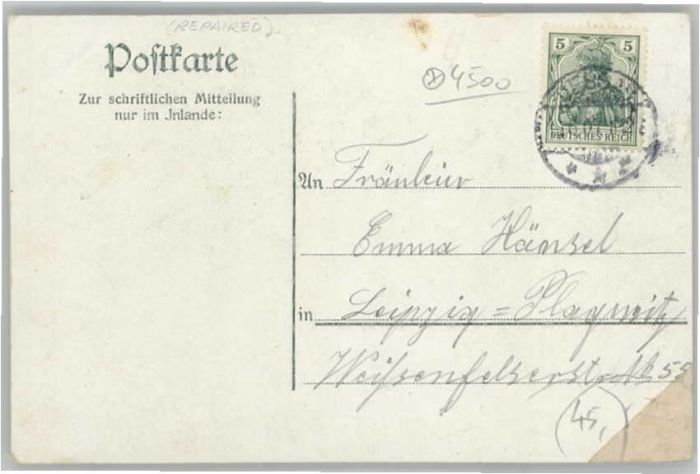 (REPAIRED)
Postkarte
Zur schriftlichen Mitteilung
nur im Inlande:
4500
5 5
DEUTSCHES REICH
An Fräulein
Emma Hänsel
in Leipzig=Plagwitz
Weißenfelserstraße 55
(45,